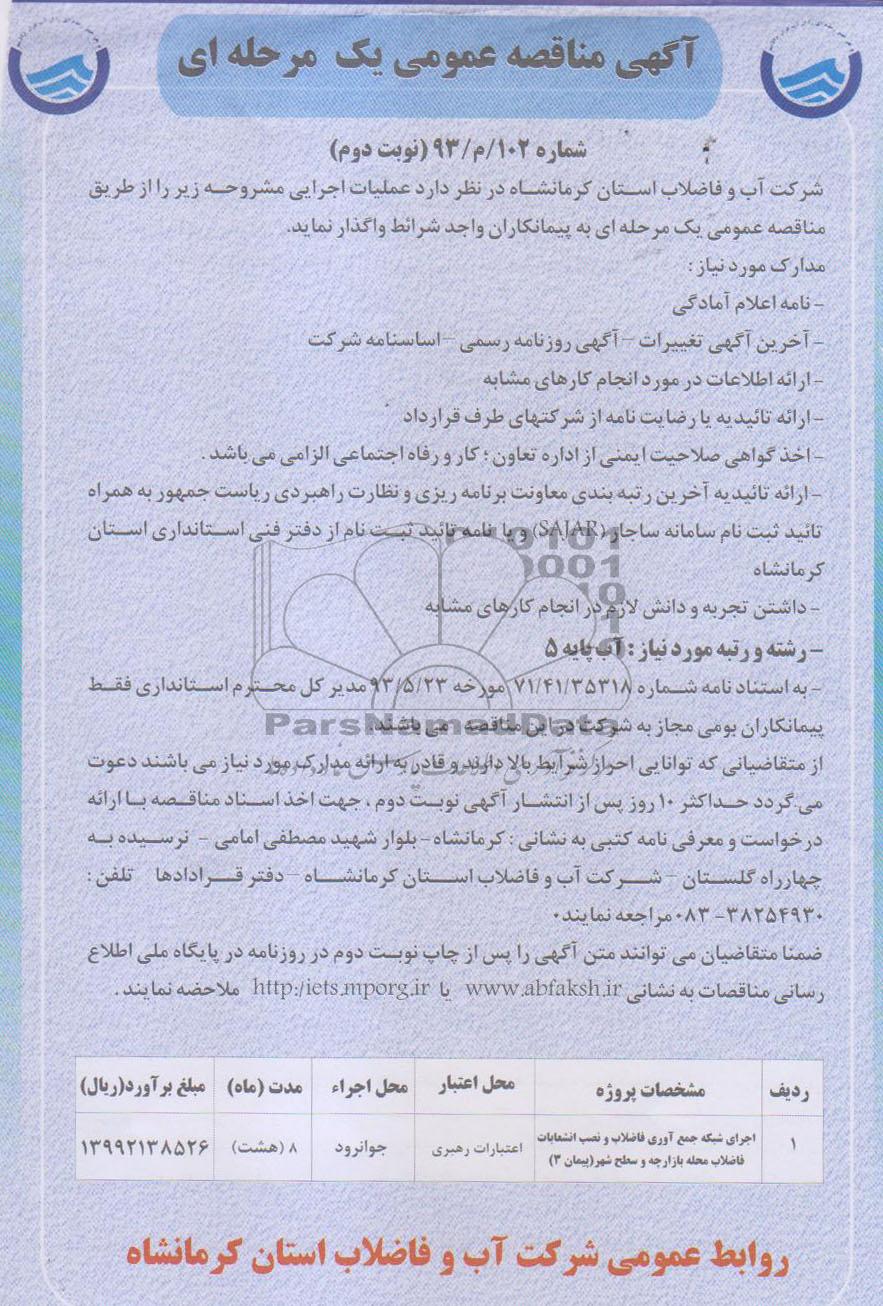 آگهی مناقصه عمومی یک مرحله ای
شماره ۱۰۲/م/۹۳ (نوبت دوم)
شرکت آب و فاضلاب استان کرمانشاه در نظر دارد عملیات اجرایی مشروحه زیر را از طریق
مناقصه عمومی یک مرحله ای به پیمانکاران واجد شرائط واگذار نماید.
مدارک مورد نیاز :
- نامه اعلام آمادگی
- آخرین آگهی تغییرات - آگهی روزنامه رسمی - اساسنامه شرکت
- ارائه اطلاعات در مورد انجام کارهای مشابه
- ارائه تائیدیه یا رضایت نامه از شرکتهای طرف قرارداد
- اخذ گواهی صلاحیت ایمنی از اداره تعاون ؛ کار و رفاه اجتماعی الزامی می باشد .
- ارائه تائیدیه آخرین رتبه بندی معاونت برنامه ریزی و نظارت راهبردی ریاست جمهور به همراه
تائید ثبت نام سامانه ساجار (SAJAR) و یا نامه تائید ثبت نام از دفتر فنی استانداری استان
کرمانشاه
- داشتن تجربه و دانش لازم در انجام کارهای مشابه
- رشته و رتبه مورد نیاز : آب پایه ۵
- به استناد نامه شماره ۷۱/۴۱/۳۵۳۱۸ مورخه ۹۳/۵/۲۳ مدیر کل محترم استانداری فقط
پیمانکاران بومی مجاز به شرکت در این مناقصه می باشند
از متقاضیانی که توانایی احراز شرایط بالا دارند و قادر به ارائه مدارک مورد نیاز می باشند دعوت
می گردد حداکثر ۱۰ روز پس از انتشار آگهی نوبت دوم ، جهت اخذ اسناد مناقصه با ارائه
درخواست و معرفی نامه کتبی به نشانی : کرمانشاه - بلوار شهید مصطفی امامی - نرسیده به
چهارراه گلستان - شرکت آب و فاضلاب استان کرمانشاه - دفتر قرادادها تلفن :
۳۸۲۵۴۹۳۰-۰۸۳ مراجعه نمایند.
ضمنا متقاضیان می توانند متن آگهی را پس از چاپ نوبت دوم در روزنامه در پایگاه ملی اطلاع
رسانی مناقصات به نشانی www.abfaksh.ir یا http:/iets.mporg.ir ملاحضه نمایند .
ردیف مشخصات پروژه محل اعتبار محل اجراء مدت (ماه) مبلغ برآورد(ریال)
۱ اجرای شبکه جمع آوری فاضلاب و نصب انشعابات فاضلاب محله بازارچه و سطح شهر(پیمان ۳) اعتبارات رهبری جوانرود ۸ (هشت) ۱۳۹۹۲۱۳۸۵۲۶
روابط عمومی شرکت آب و فاضلاب استان کرمانشاه
ParsNamadData